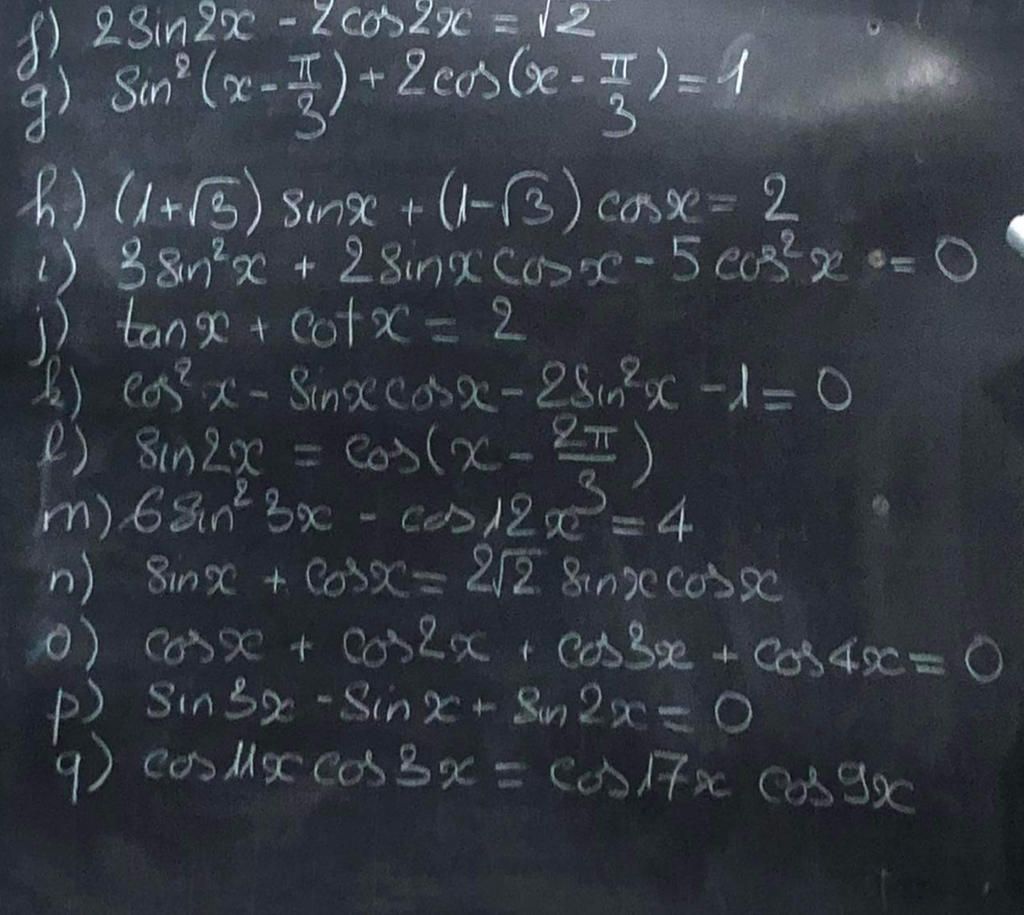 f) 2 sin2x - 2 cos2x = √2
g) sin²(x - π/3) + 2cos(x - π/3) = 1
h) (1+√3) sinx + (1-√3) cosx = 2
i) 3 sin²x + 2 sinx cosx - 5 cos²x = 0
j) tanx + cotx = 2
k) cos²x - sinx cosx - 2 sin²x - 1 = 0
l) sin2x = cos(x - 2π/3)
m) 6 sin²3x - cos12x = 4
n) sinx + cosx = 2√2 sinx cosx
o) cosx + cos2x + cos3x + cos4x = 0
p) sin3x - sinx + sin2x = 0
q) cos11x cos3x = cos17x cos9x